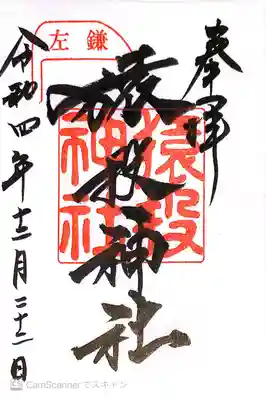 奉拝
左鎌
猿投神社
猿投神社
令和四年十二月二十二日
CS CamScannerでスキャン